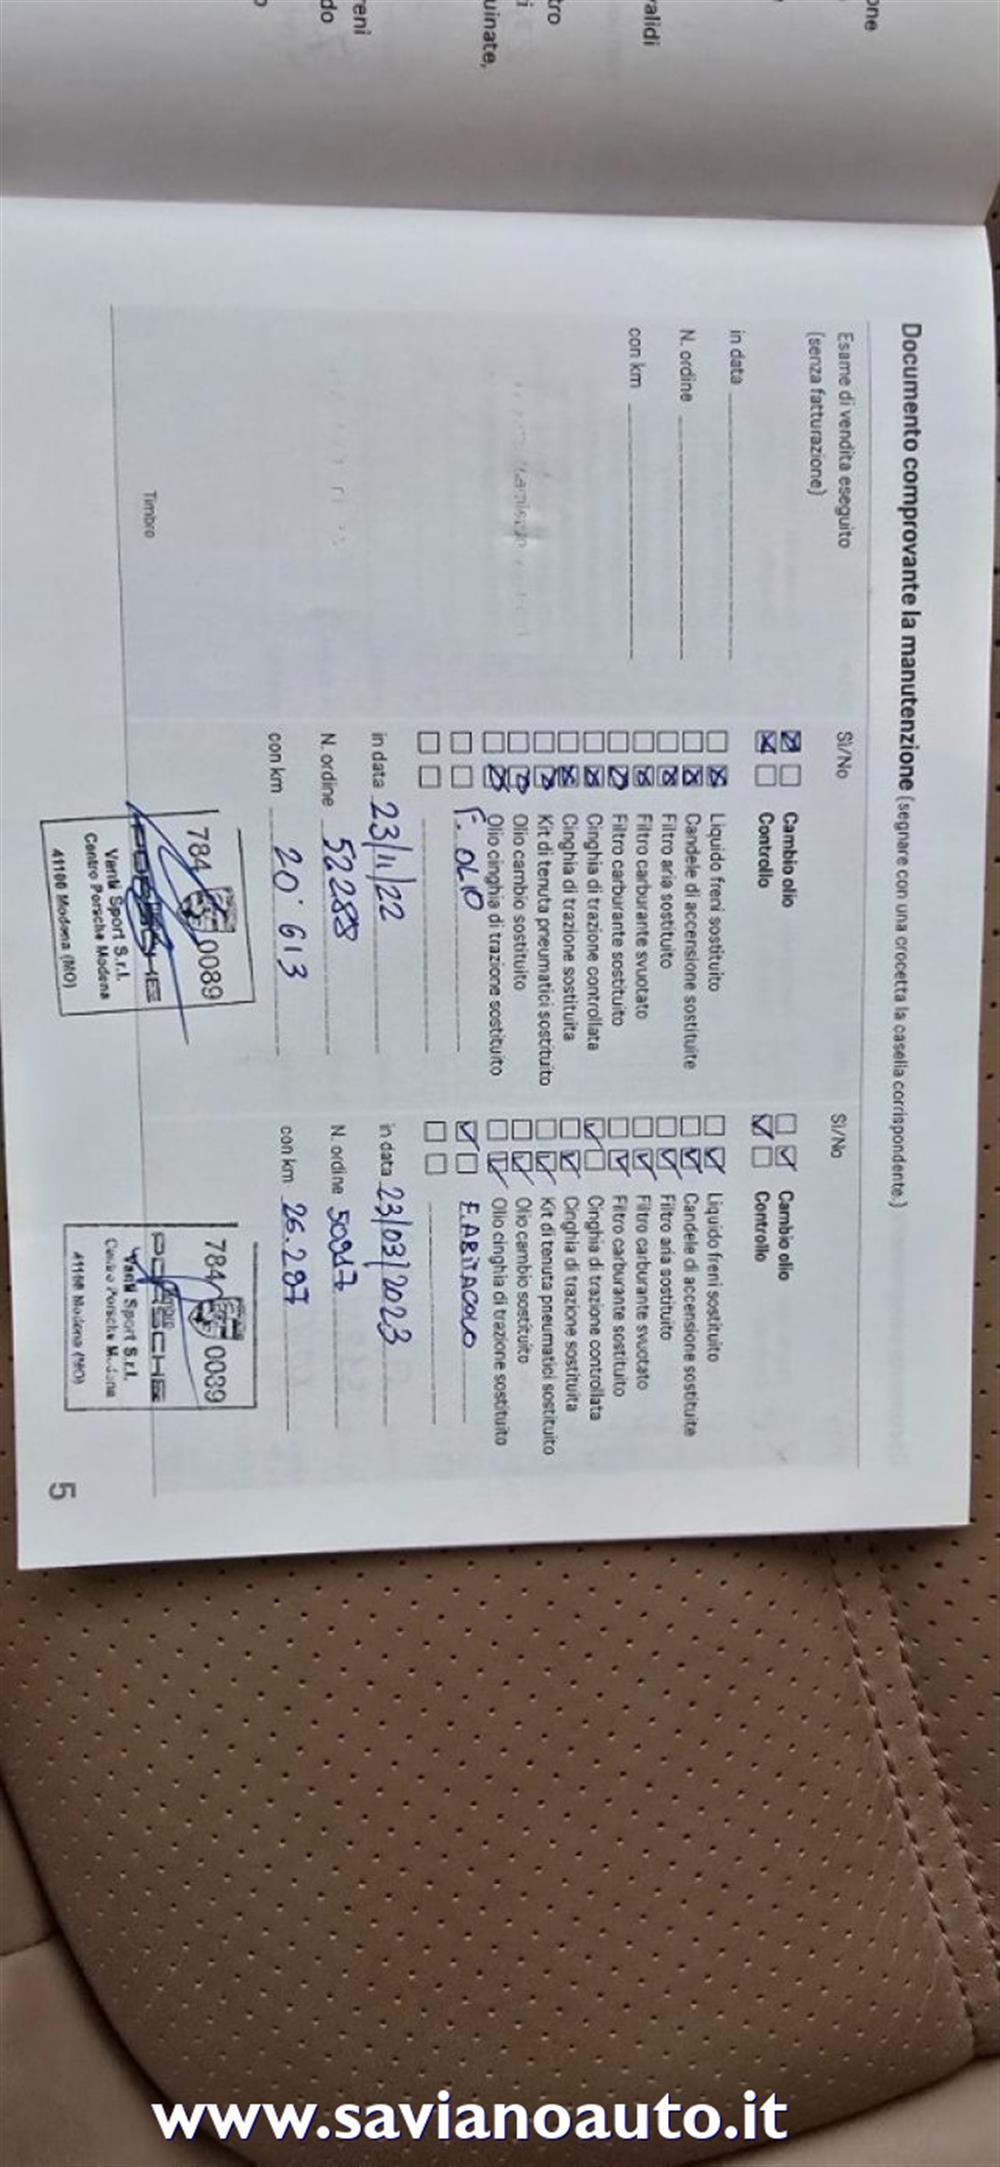 one
validi
tro
i
uinate,
reni
do
o
Documento comprovante la manutenzione (segnare con una crocetta la casella corrispondente.)
Esame di vendita eseguito
(senza fatturazione)
in data
N. ordine
con km
Timbro
Sì/No
Cambio olio
Controllo
Liquido freni sostituito
Candele di accensione sostituite
Filtro aria sostituito
Filtro carburante svuotato
Filtro carburante sostituito
Cinghia di trazione controllata
Cinghia di trazione sostituita
Kit di tenuta pneumatici sostituito
Olio cambio sostituito
Olio cinghia di trazione sostituito
F. OLIO
in data 23/11/22
N. ordine 52288
con km 20.613
784 0089
PORSCHE
Venti Sport S.r.l.
Centro Porsche Modena
41100 Modena (MO)
Sì/No
Cambio olio
Controllo
Liquido freni sostituito
Candele di accensione sostituite
Filtro aria sostituito
Filtro carburante svuotato
Filtro carburante sostituito
Cinghia di trazione controllata
Cinghia di trazione sostituita
Kit di tenuta pneumatici sostituito
Olio cambio sostituito
Olio cinghia di trazione sostituito
F. ABITACOLO
in data 23/03/2023
N. ordine
con km 26.287
784 0089
Timbro
PORSCHE
Venti Sport S.r.l.
Centro Porsche Modena
41100 Modena (MO)
5
www.savianoauto.it